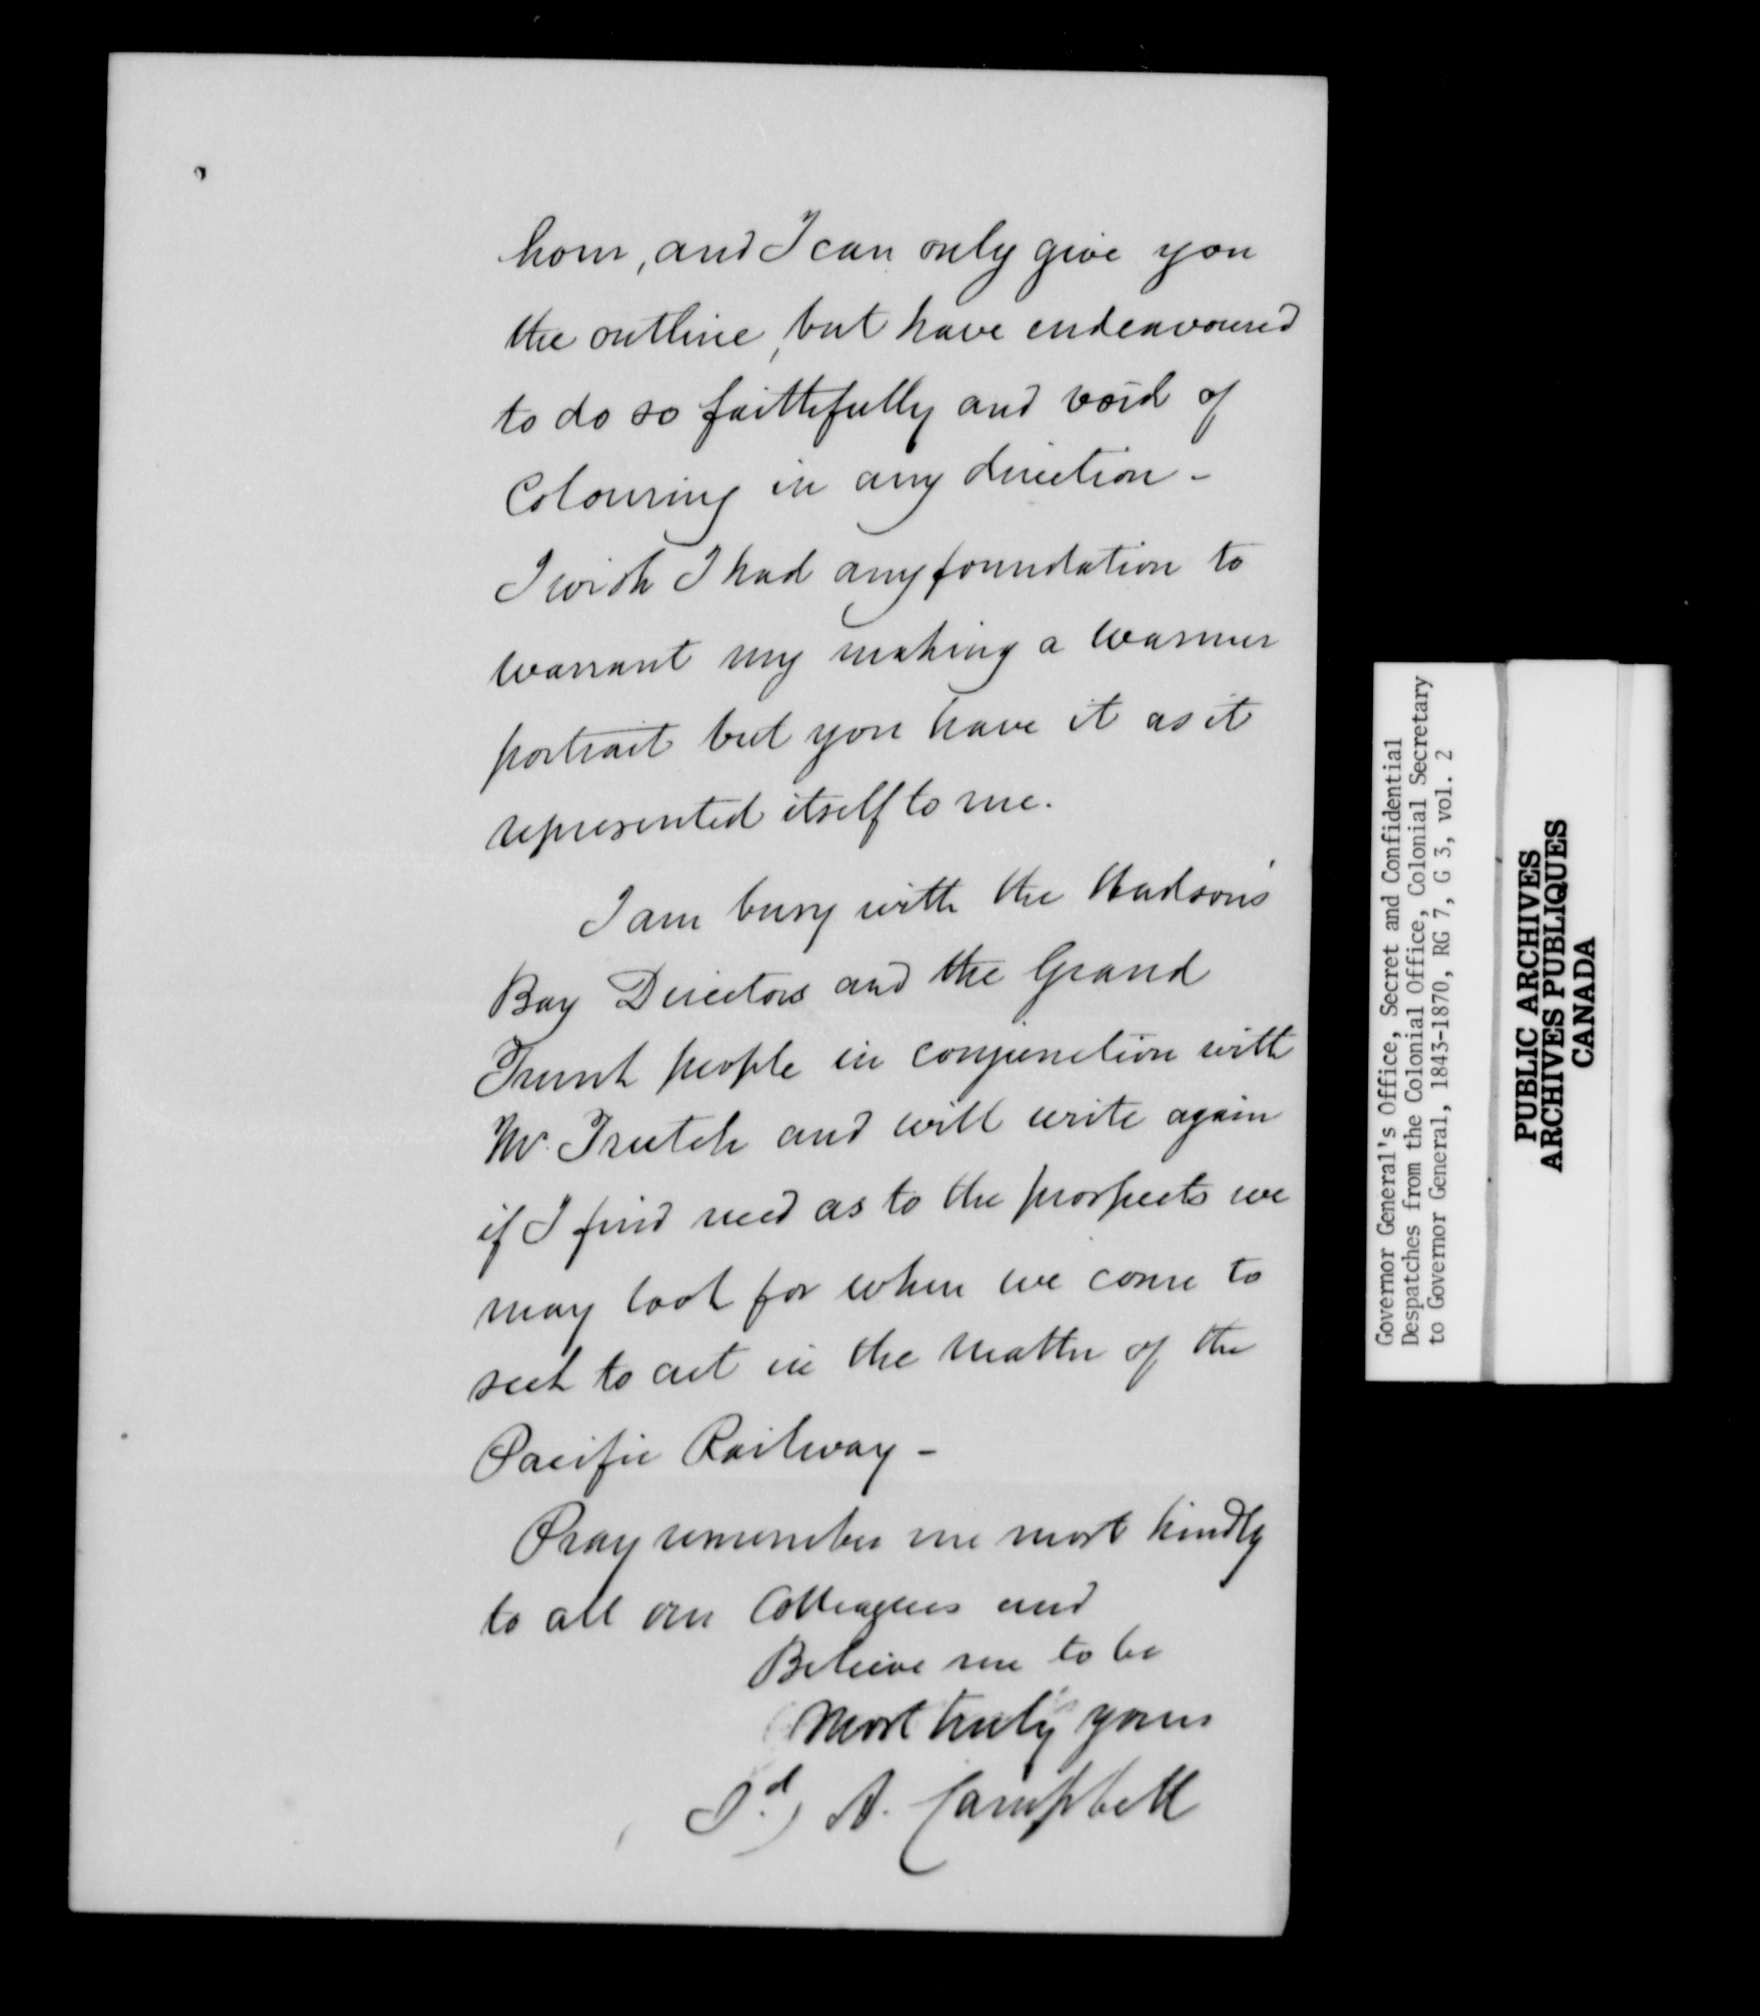 hour, and I can only give you
the outline, but have endeavoured
to do so faithfully and void of
Colouring in any direction -
I wish I had any foundation to
warrant my making a warmer
portrait but you have it as it
represented itself to me.
I am busy with the Hudson's
Bay Directors and the Grand
Trunk people in conjunction with
Mr. Trutch and will write again
if I find need as to the prospects we
may look for when we come to
seek to act in the matter of the
Pacific Railway -
Pray remember me most kindly
to all our Colleagues and
Believe me to be
Most truly yours
Sd.) A. Campbell
Governor General's Office, Secret and Confidential
Despatches from the Colonial Office, Colonial Secretary
to Governor General, 1843-1870, RG 7, G 3, vol. 2
PUBLIC ARCHIVES
ARCHIVES PUBLIQUES
CANADA